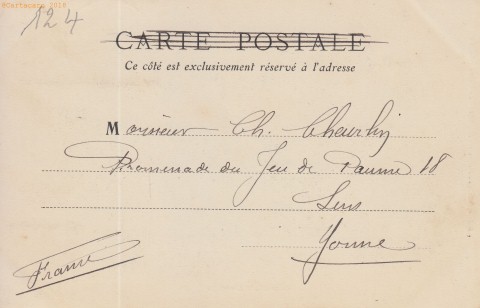 ©Cartacara 2018
124
CARTE POSTALE
Ce côté est exclusivement réservé à l'adresse
Monsieur Ch. Cheurlin
Promenade du Jeu de Paume 18
Sens
Yonne
France